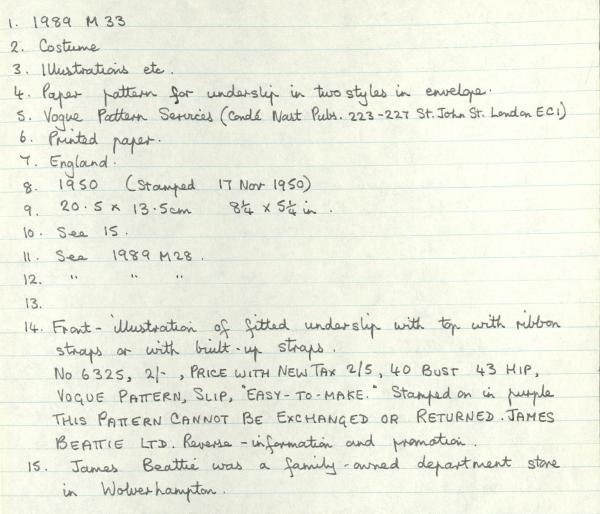 1. 1989 M 33
2. Costume
3. Illustrations etc.
4. Paper pattern for underslip in two styles in envelope.
5. Vogue Pattern Services (Condé Nast Pubs. 223-227 St. John St. London EC1)
6. Printed paper.
7. England.
8. 1950 (Stamped 17 Nov 1950)
9. 20.5 x 13.5cm 8¼ x 5¼ in.
10. See 15.
11. See 1989 M28.
12. " " "
13.
14. Front - illustration of fitted underslip with top with ribbon
straps or with built-up straps.
No 6325, 2/-, PRICE WITH NEW TAX 2/5, 40 BUST 43 HIP,
VOGUE PATTERN, SLIP, "EASY-TO-MAKE." Stamped on in purple
THIS PATTERN CANNOT BE EXCHANGED OR RETURNED. JAMES
BEATTIE LTD. Reverse - information and promotion.
15. James Beattie was a family-owned department store
in Wolverhampton.